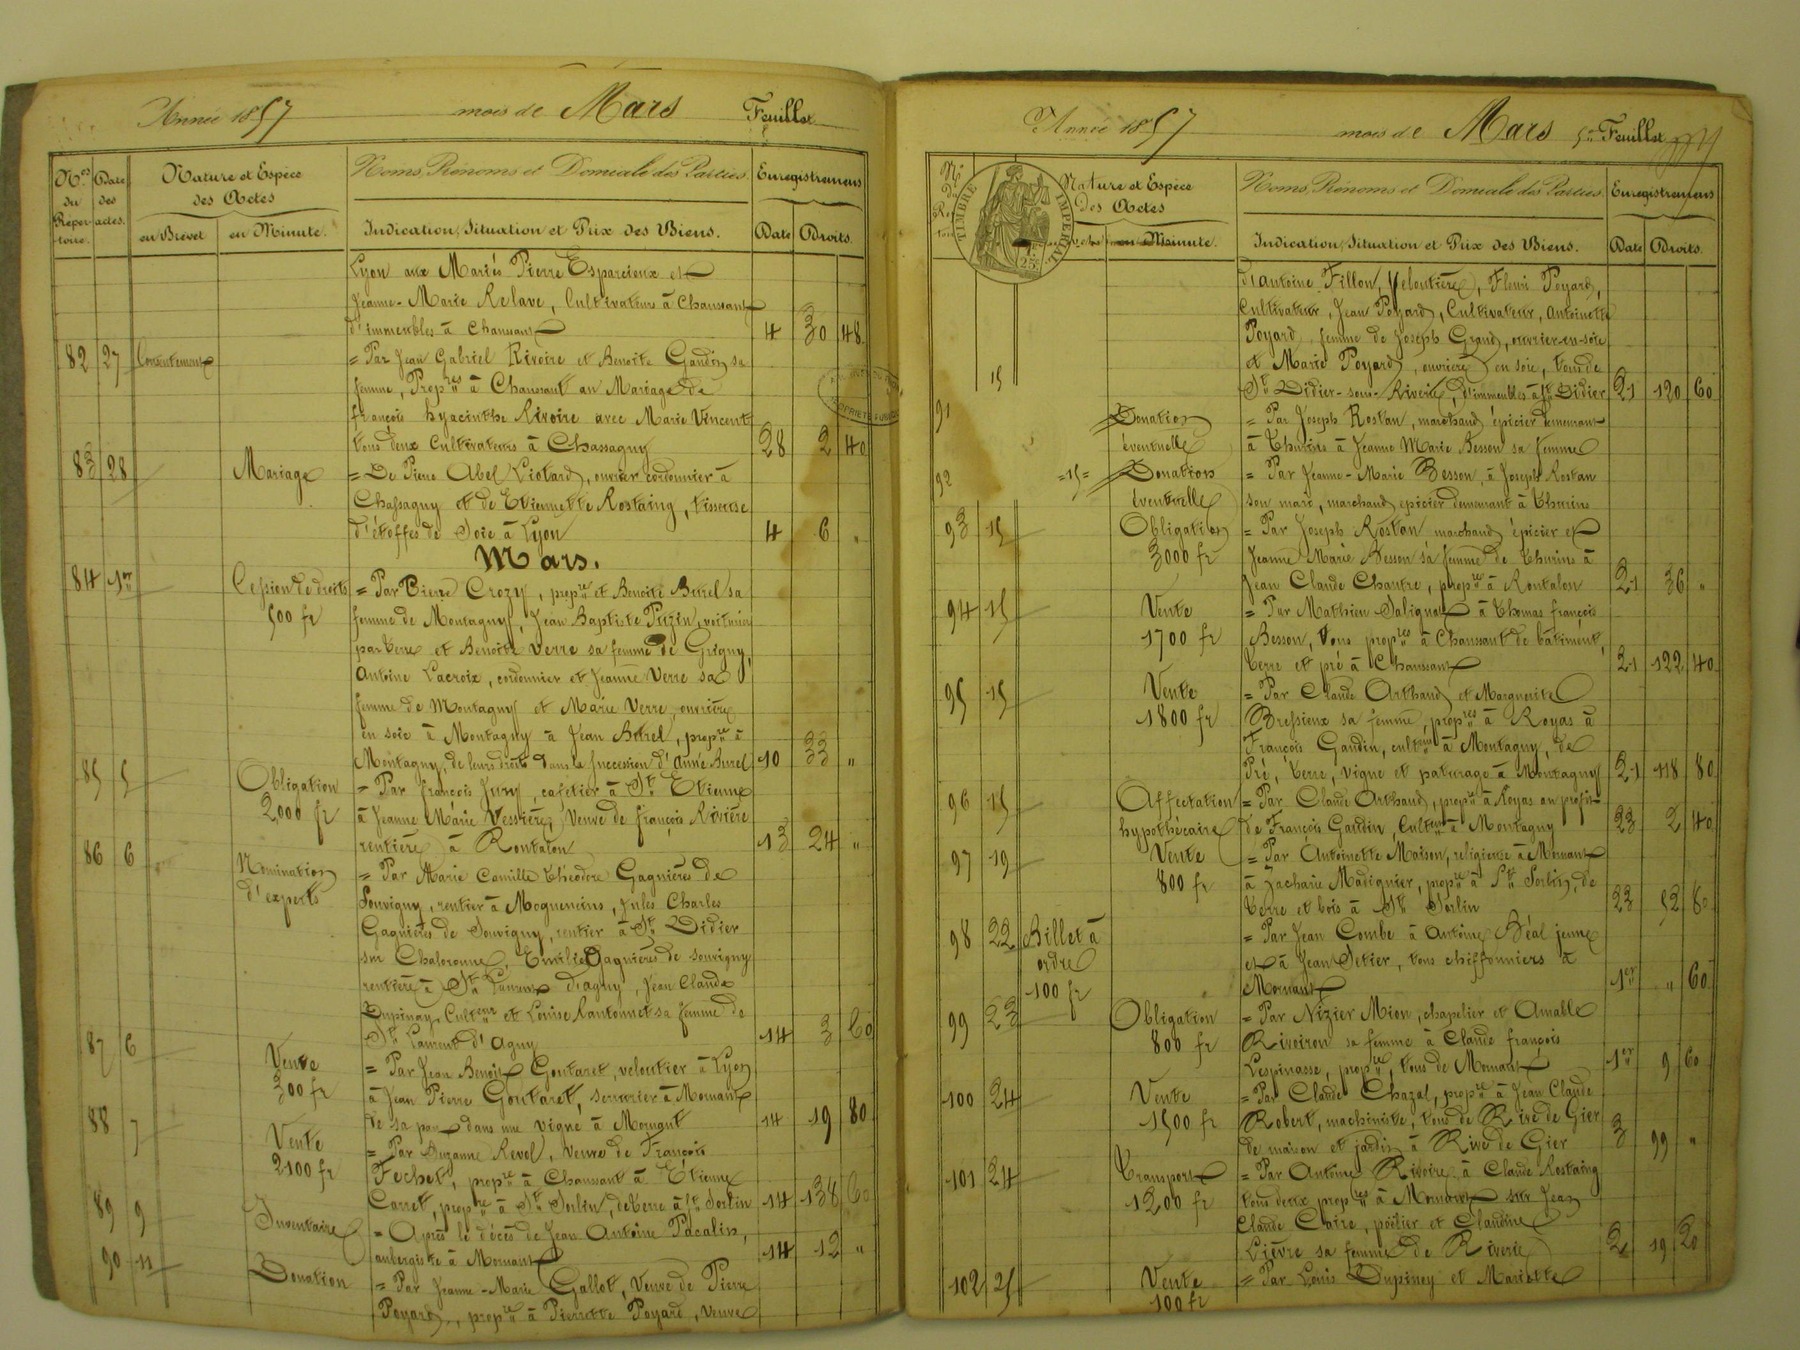 Année 1857 mois de Mars Feuillet
Nos du Répertoire. Date des actes. Nature et Espèce des Actes Noms, Prénoms et Domicile des Parties. Enregistremens
en Brevet en Minute. Indication, Situation et Prix des Biens. Date Droits.
Lyon aux Mariés Pierre Esparcieux et
Jeanne-Marie Relave, Cultivateurs à Chaussant
d'immeubles à Chaussant 4 30 48
82 27 Consentement = Par Jean Gabriel Rivoire et Benoite Gaudin sa
femme, Propres à Chaussant au Mariage de
françois hyacinthe Rivoire avec Marie Vincent
tous deux Cultivateurs à Chassagny 28 2 40
83 28 Mariage = De Pierre Abel Liotard, ouvrier cordonnier à
Chassagny et de Etiennette Rostaing, tisseuse
d'étoffes de Soie à Lyon 4 6 "
Mars.
84 1er Cession de droits = Par Pierre Crozy, propre et Benoite Burel sa
500 fr femme de Montagny, Jean Baptiste Puzin, voiturier
par terre et Benoite Verre sa femme de Grigny,
Antoine Lacroix, cordonnier et Jeanne Verre sa
femme de Montagny et Marie Verre, ouvrière
en soie à Montagny à Jean Burel, propre à
Montagny, de leurs droits dans la succession d'Anne Burel 10 33 "
85 5 Obligation = Par françois Jury, cafetier à St Etienne
2,000 fr à Jeanne Marie Vessière, Veuve de françois Rivière
rentière à Rontalon 13 24 "
86 6 Nomination = Par Marie Camille Théodore Gagnières de
d'experts Souvigny, rentier à Mogneneins, Jules Charles
Gagnières de Souvigny, rentier à St Didier
sur Chalaronne, Emilie Gagnières de souvigny
rentière à St Laurent d'agny, Jean Claude
Dupinay, Culteur et Louise Rantonnet sa femme de
St Laurent d'Agny 14 3 60
87 6 Vente = Par Jean Benoit Goutaret, veloutier à Lyon
300 fr à Jean Pierre Goutaret, serrurier à Mornant
de sa part dans une vigne à Mornant 14 19 80
88 7 Vente = Par Suzanne Revol, Veuve de François
2100 fr Fechet, propre à Chaussant à Etienne
Carret, propre à St Sorlin, de terre à St Sorlin 14 138 60
89 9 Inventaire = Après le décès de Jean Antoine Pacalin,
aubergiste à Mornant 14 12 "
90 11 Donation = Par Jeanne-Marie Gallot, Veuve de Pierre
Poyard, propre à Pierrette Poyard, veuve
Année 1857 mois de Mars 5e Feuillet
TIMBRE IMPERIAL 25c
Nature et Espèce des Actes Noms, Prénoms et Domicile des Parties. Enregistremens
en Minute. Indication, Situation et Prix des Biens. Date Droits.
d'antoine Fillon, Veloutière, Fleuri Poyard,
Cultivateur, Jean Poyard, Cultivateur, Antoinette
Poyard, femme de Joseph Grand, ouvrier-en-soie
et Marie Poyard, ouvrière en soie, tous de
St Didier-sous-Riverie, d'immeubles à St Didier 21 120 60
91 15 Donation = Par Joseph Rostan, marchand épicier demeurant
éventuelle à Thurins à Jeanne Marie Besson sa femme
92 =15= Donation = Par Jeanne-Marie Besson, à Joseph Rostan
éventuelle son mari, marchand epicier demeurant à Thurins
93 15 Obligation = Par Joseph Rostan marchand épicier et
3000 fr Jeanne Marie Besson sa femme de Thurins à
Jean Claude Chantre, propre à Rontalon 21 36 "
94 15 Vente = Par Mathieu Salignat à Thomas françois
1700 fr Besson, tous propres à Chaussant de bâtiment,
terre et pré à Chaussant 21 122 40
95 15 Vente = Par Claude Arthaud et Marguerite
1800 fr Bressieux sa femme, propres à Royas à
François Gaudin, culteur à Montagny, de
Pré, terre, vigne et paturage à Montagny 21 118 80
96 15 Affectation = Par Claude Arthaud, propre à Royas au profit
hypothécaire de François Gaudin, Culteur à Montagny 23 2 40
97 19 Vente = Par Antoinette Maison, religieuse à Mornant
800 fr à Zacharie Madignier, propre à St Sorlin, de
terre et bois à St Sorlin 23 52 80
98 22 Billet à = Par Jean Combe à Antoine Béal jeune
ordre et à Jean Setier, tous chiffonniers à
100 fr Mornant 1er " 60
99 23 Obligation = Par Nizier Mion, chapelier et Amable
800 fr Rivoiron sa femme à Claude françois
Lespinasse, propre, tous de Mornant 1er 9 60
100 24 Vente = Par Claude Chazal, propre à Jean Claude
1500 fr Robert, machiniste, tous de Rive de Gier
de maison et jardin à Rive de Gier 3 99 "
101 24 Transport = Par Antoine Rivoire à Claude Rostaing
1200 fr tous deux propres à Mornant sur Jean
Claude Caire, poêlier et Claudine
Lièvre sa femme de Riverie 2 19 20
102 25 Vente = Par Louis Dupiney et Mariette
100 fr